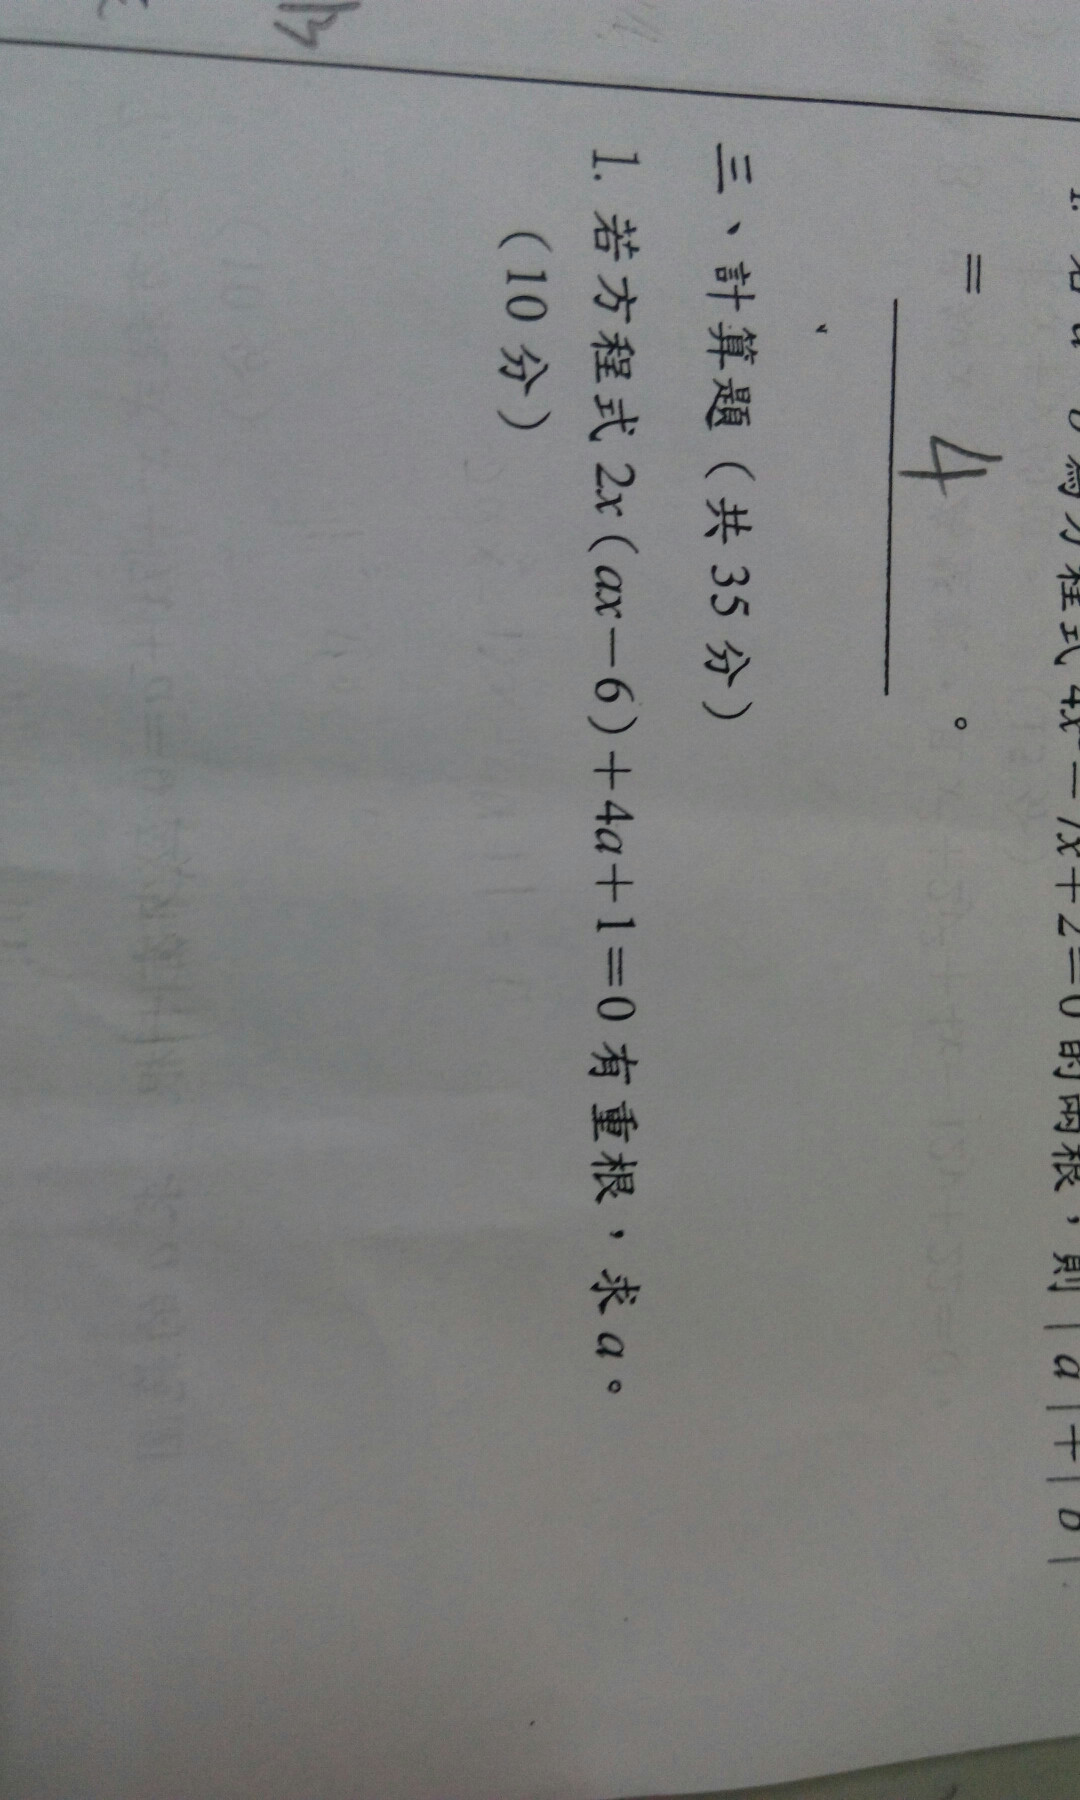 為方程式4x²－7x＋2=0的兩根，則|a|＋|b|
= 4 。
三、計算題（共35分）
1. 若方程式2x(ax－6)＋4a＋1=0有重根，求a。
（10分）